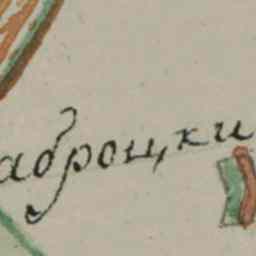 аброцки